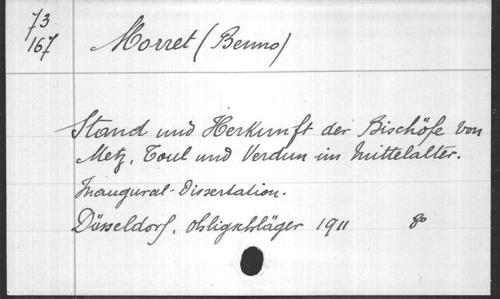 73
167
Morret (Benno)
Stand und Herkunft der Bischöfe von
Metz, Toul und Verdun im Mittelalter.
Inaugural-Dissertation.
Düsseldorf, Ohligschläger 1911 8o